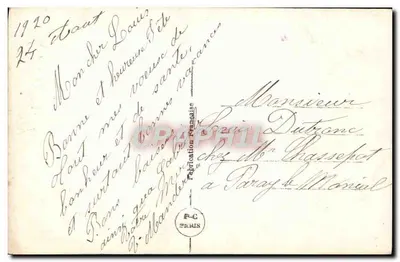 1920
24 Aout
Mon cher Louis
Bonne et heureuse Fête
Tout mes voeux de
bonheur et de santé,
et surtout bonnes vacances
Bons baisers
ainsi que
Fabrication Française
P-C
PARIS
CPAPHIL
Monsieur
Louis Dutzanc
chez Mr Chassepot
a Paray le Monial